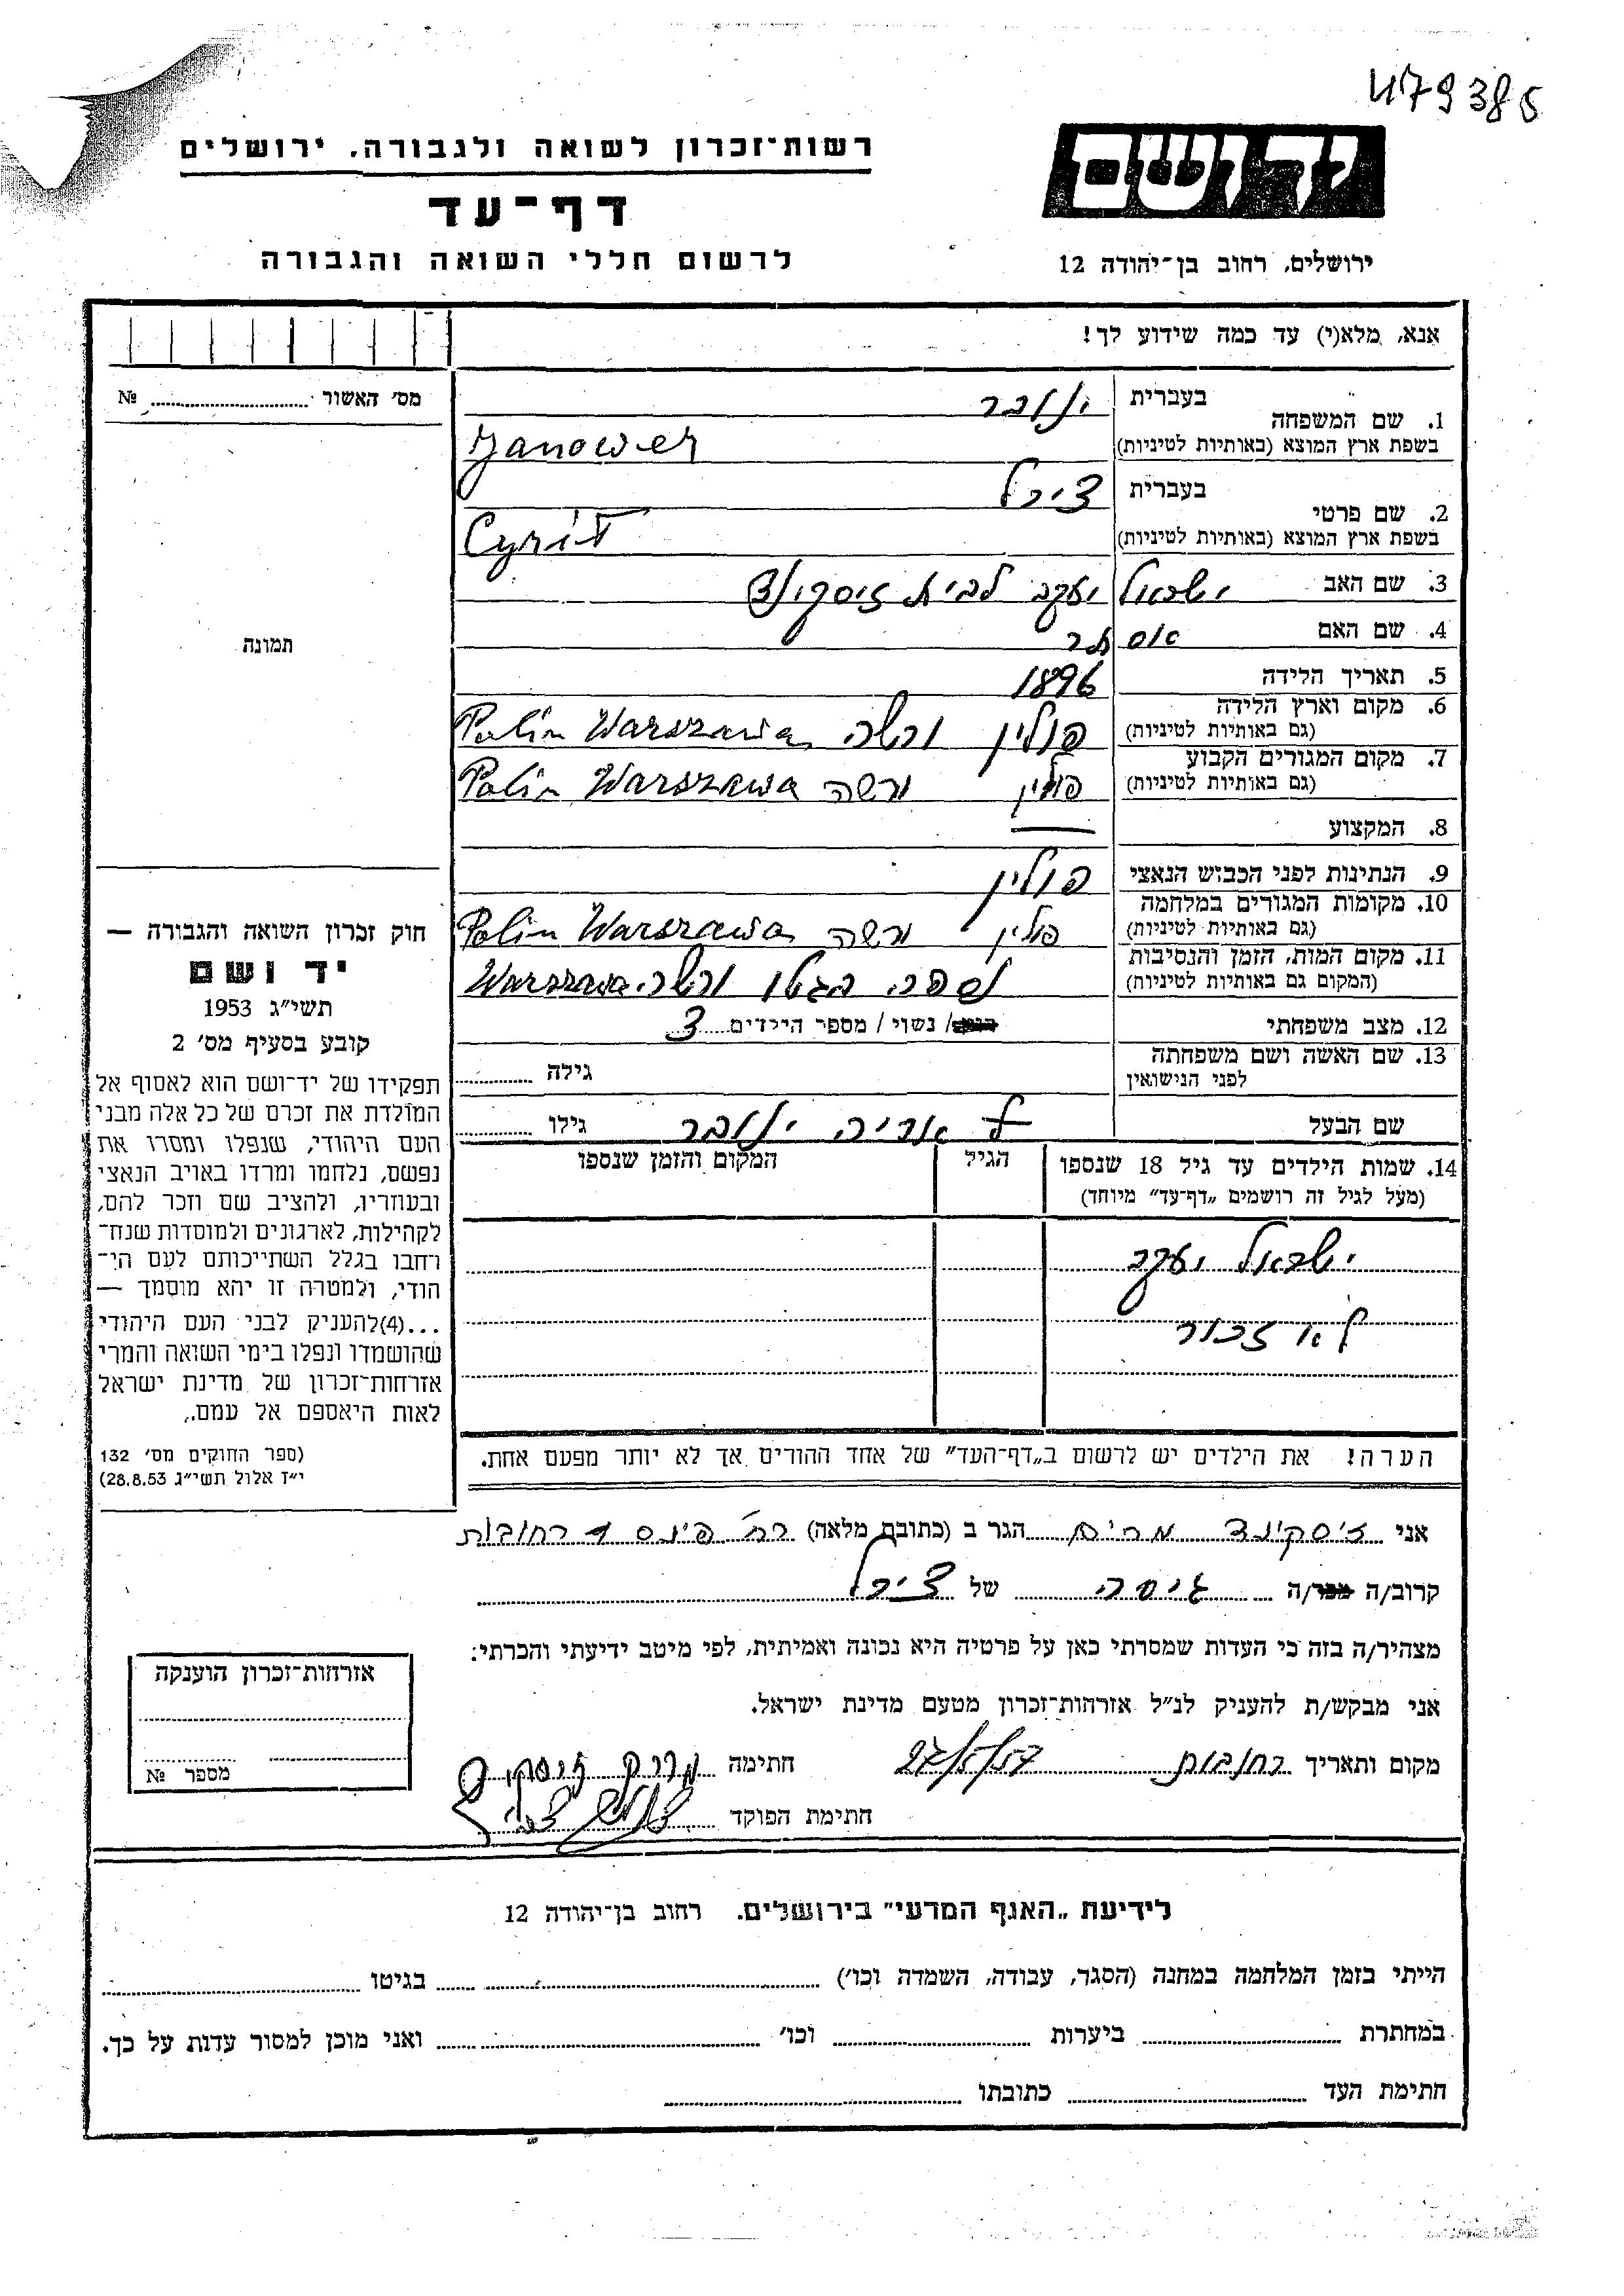 479385
יד ושם
ירושלים, רחוב בן־יהודה 12
רשות־זכרון לשואה ולגבורה, ירושלים
דף־עד
לרשום חללי השואה והגבורה
אנא, מלא(י) עד כמה שידוע לך!
מס׳ האשור ... №
1. שם המשפחה
בעברית ינובר
בשפת ארץ המוצא (באותיות לטיניות) Janower
2. שם פרטי
בעברית צירל
בשפת ארץ המוצא (באותיות לטיניות)
3. שם האב ישראל יעקב לבית זיסקינד
4. שם האם אסתר
5. תאריך הלידה 1896
6. מקום וארץ הלידה
(גם באותיות לטיניות) פולין ורשה Polin Warszawa
7. מקום המגורים הקבוע
(גם באותיות לטיניות) פולין ורשה Polin Warszawa
8. המקצוע —
9. הנתינות לפני הכבוש הנאצי פולין
10. מקומות המגורים במלחמה
(גם באותיות לטיניות) פולין ורשה Polin Warszawa
11. מקום המות, הזמן והנסיבות
(המקום גם באותיות לטיניות) נספה בגטו ורשה Warszawa
12. מצב משפחתי / נשוי / מספר הילדים 3
13. שם האשה ושם משפחתה
לפני הנישואין גילה
שם הבעל אריה ינובר גילו
14. שמות הילדים עד גיל 18 שנספו הגיל המקום והזמן שנספו
(מעל לגיל זה רושמים „דף־עד” מיוחד)
ישראל יעקב
לא זכור
הערה! את הילדים יש לרשום ב„דף־העד” של אחד ההורים אך לא יותר מפעם אחת.
תמונה
חוק זכרון השואה והגבורה —
יד ושם
תשי״ג 1953
קובע בסעיף מס׳ 2
תפקידו של יד־ושם הוא לאסוף אל
המולדת את זכרם של כל אלה מבני
העם היהודי, שנפלו ומסרו את
נפשם, נלחמו ומרדו באויב הנאצי
ובעוזריו, ולהציב שם וזכר להם,
לקהילות, לארגונים ולמוסדות שנח־
רחבו בגלל השתייכותם לעם הי־
הודי, ולמטרה זו יהא מוסמך —
...(4)להעניק לבני העם היהודי
שהושמדו ונפלו בימי השואה והמרי
אזרחות־זכרון של מדינת ישראל
לאות היאספם אל עמם.„
(ספר החוקים מס׳ 132
י״ז אלול תשי״ג 28.8.53)
אני זיסקינד מרים הגר ב (כתובת מלאה) רח׳ פינס 1 רחובות
קרוב/ה מכר/ה גיסה של צירל
מצהיר/ה בזה כי העדות שמסרתי כאן על פרטיה היא נכונה ואמיתית, לפי מיטב ידיעתי והכרתי:
אני מבקש/ת להעניק לנ״ל אזרחות־זכרון מטעם מדינת ישראל.
מקום ותאריך רחובות 27/5/57 חתימה
חתימת הפוקד
אזרחות־זכרון הוענקה
מספר №
לידיעת „האגף המדעי” בירושלים. רחוב בן־יהודה 12
הייתי בזמן המלחמה במחנה (הסגר, עבודה, השמדה וכו׳) בגיטו
במחתרת ביערות וכו׳ ואני מוכן למסור עדות על כך.
חתימת העד כתובתו